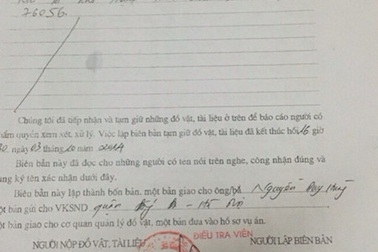 76056.
Chúng tôi đã tiếp nhận và tạm giữ những đồ vật, tài liệu ở trên để báo cáo người có
thẩm quyền xem xét, xử lý. Việc lập biên bản tạm giữ đồ vật, tài liệu đã kết thúc hồi 16 giờ
30 ngày 03 tháng năm
Biên bản này đã đọc cho những người có tên nói trên nghe, công nhận đúng và
cùng ký tên xác nhận dưới đây.
Biên bản này lập thành bốn bản, một bản giao cho ông/bà Nguyễn Duy Hùng
một bản gửi cho VKSND quận
một bản giao cho cơ quan quản lý đồ vật, một bản đưa vào hồ sơ vụ án.
ĐIỀU TRA VIÊN
NGƯỜI NỘP ĐỒ VẬT, TÀI LIỆU NGƯỜI LẬP BIÊN BẢN